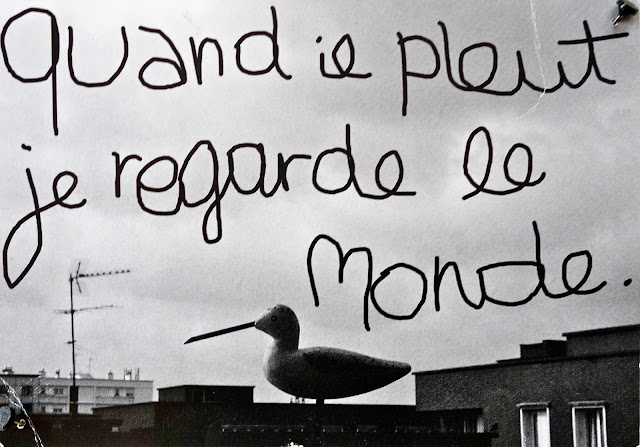 Quand il pleut
je regarde le
Monde.